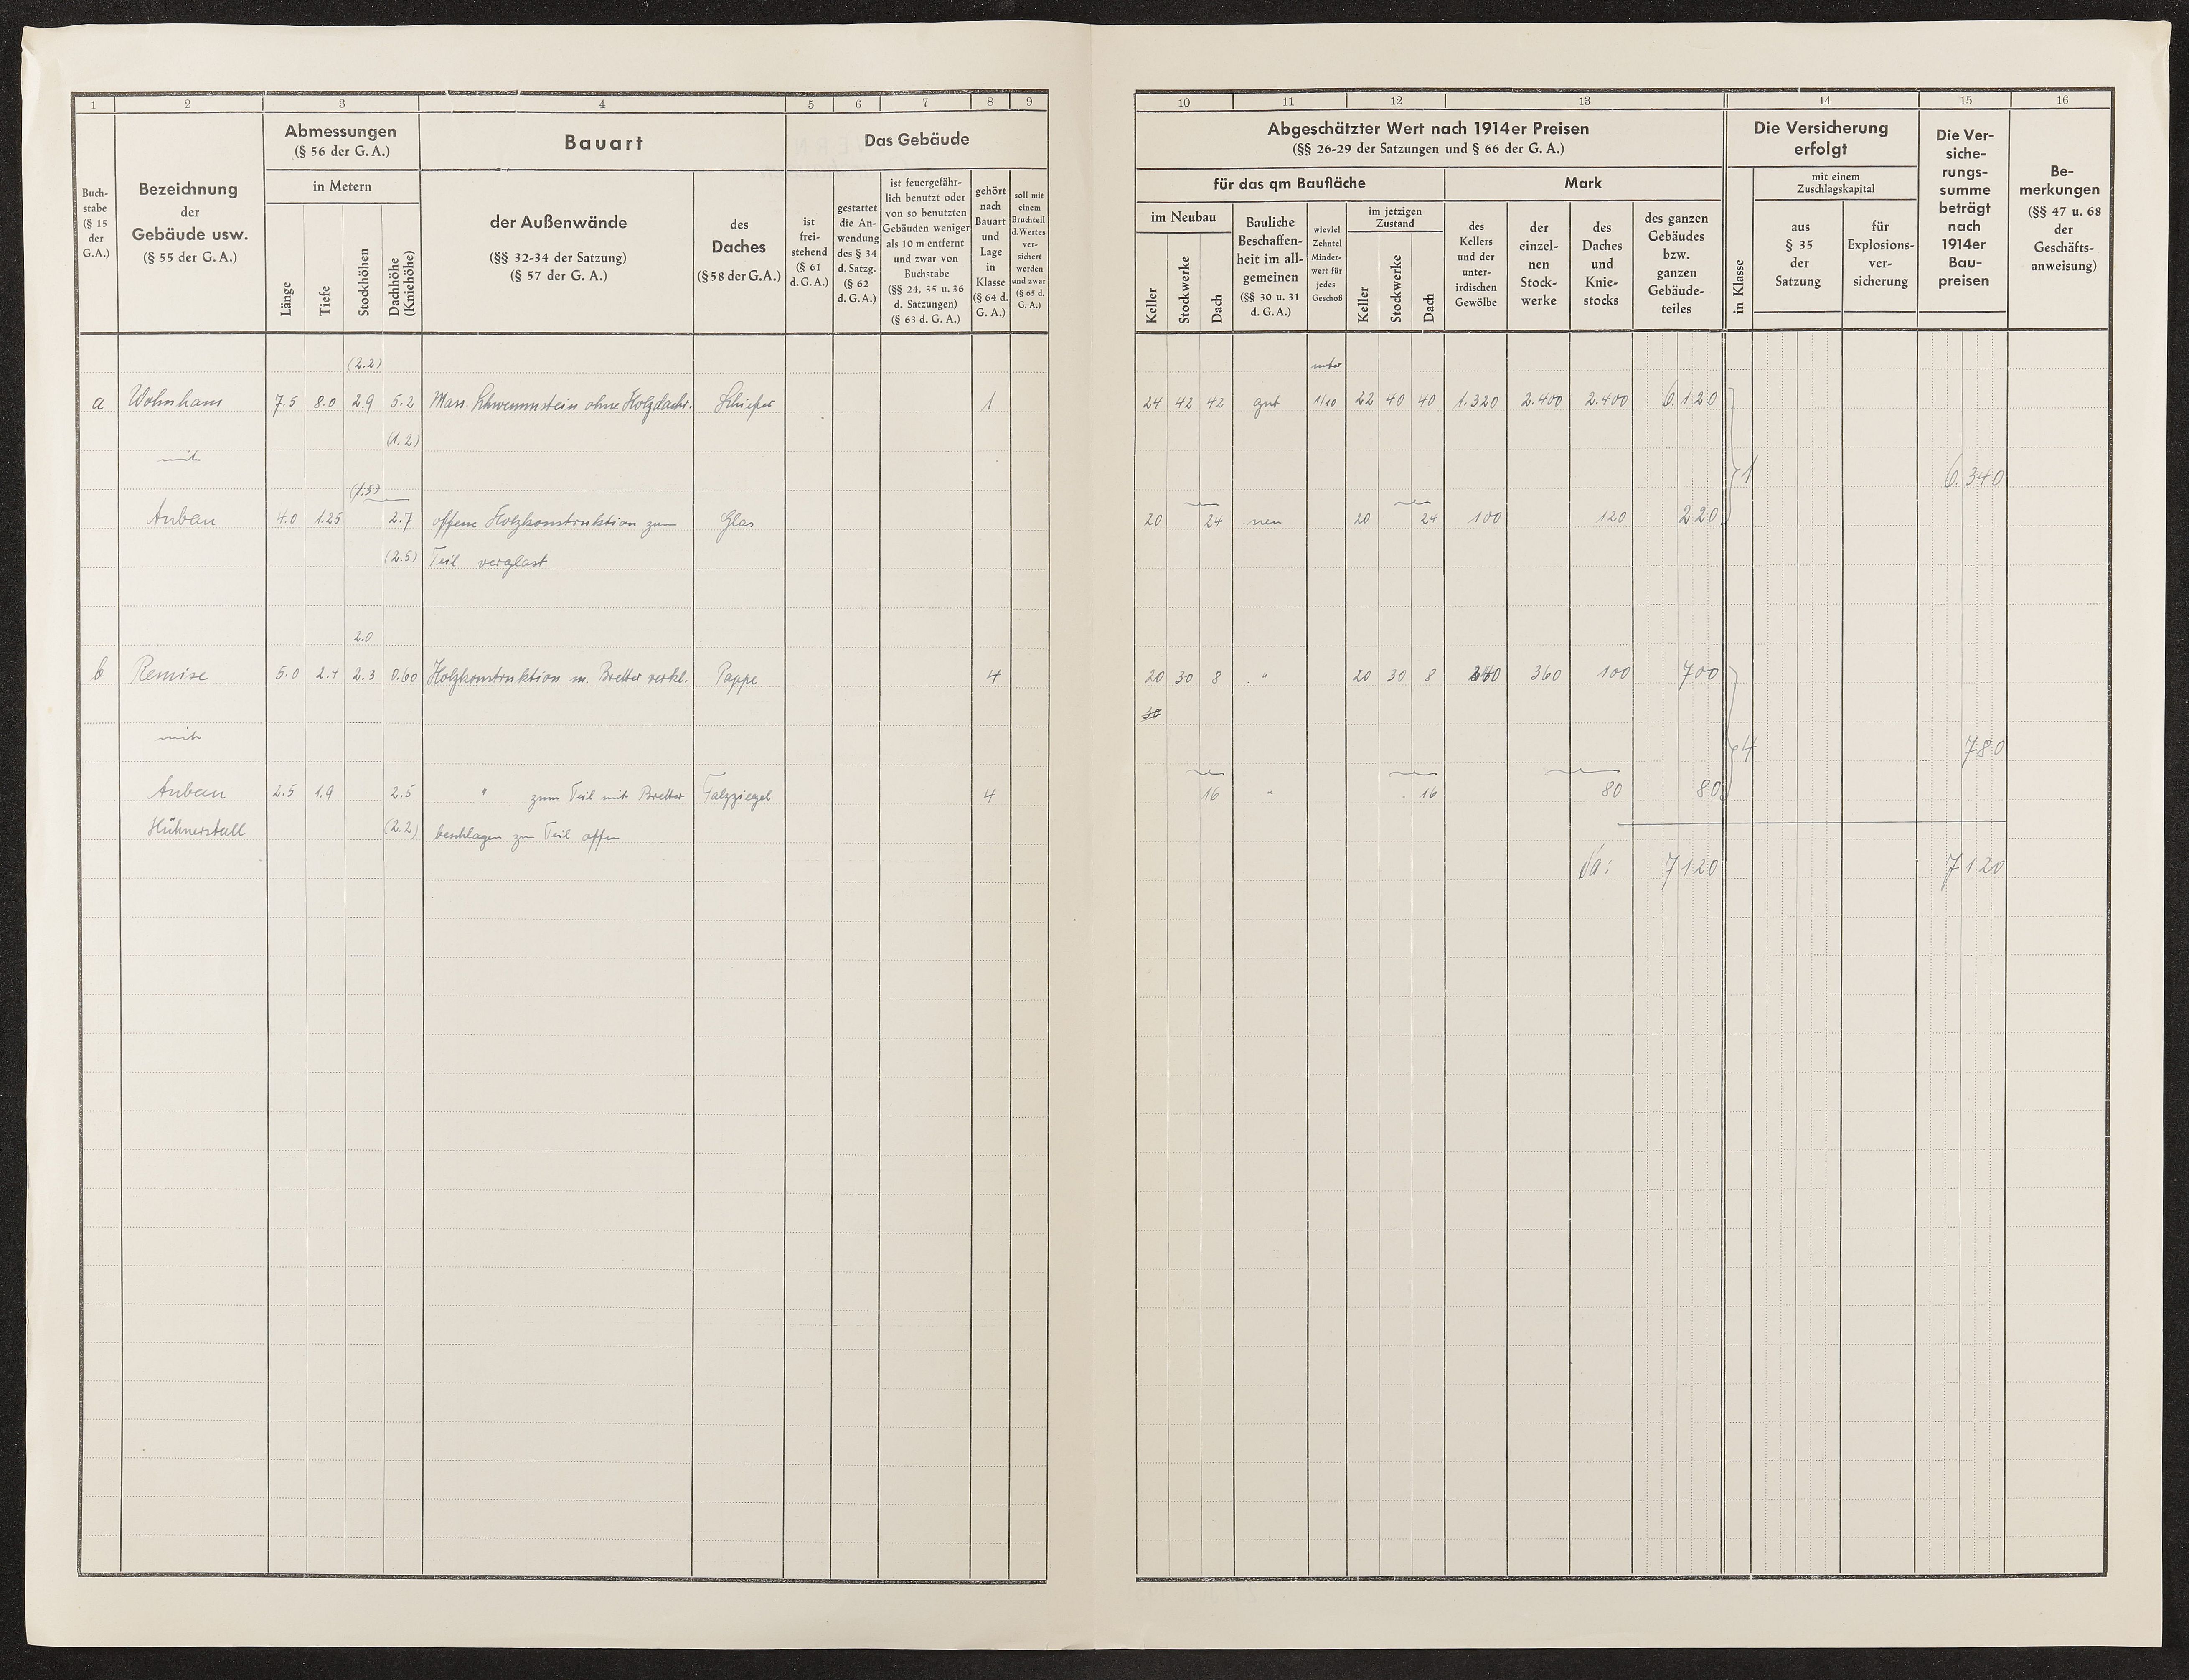 1 2 3 4 5 6 7 8 9
Buch-
stabe
(§ 15
der
G.A.)
Bezeichnung
der
Gebäude usw.
(§ 55 der G. A.)
Abmessungen
(§ 56 der G. A.)
in Metern
Länge
Tiefe
Stockhöhen
Dachhöhe
(Kniehöhe)
Bauart
der Außenwände
(§§ 32-34 der Satzung)
(§ 57 der G. A.)
des
Daches
(§ 58 der G. A.)
Das Gebäude
ist
frei-
stehend
(§ 61
d. G. A.)
gestattet
die An-
wendung
des § 34
d. Satzg.
(§ 62
d. G. A.)
ist feuergefähr-
lich benutzt oder
von so benutzten
Gebäuden weniger
als 10 m entfernt
und zwar von
Buchstabe
(§§ 24, 35 u. 36
d. Satzungen)
(§ 63 d. G. A.)
gehört
nach
Bauart
und
Lage
in
Klasse
(§ 64 d.
G. A.)
soll mit
einem
Bruchteil
d. Wertes
ver-
sichert
werden
und zwar
(§ 65 d.
G. A.)
(2.2)
a Wohnhaus 7.5 8.0 2.9 5.2 Mass. Schwemmstein ohne Holzdachr. Schiefer 1
(1.2)
mit
(1.5)
Anbau 4.0 1.25 2.7 offene Holzkonstruktion zum Glas
(2.5) Teil verglast
2.0
b Remise 5.0 2.4 2.3 0.60 Holzkonstruktion m. Bretter verkl. Pappe 4
mit
Anbau 2.5 1.9 2.5 " zum Teil mit Bretter Falzziegel 4
Hühnerstall (2.2) beschlagen zum Teil offen
10 11 12 13 14 15 16
Abgeschätzter Wert nach 1914er Preisen
(§§ 26-29 der Satzungen und § 66 der G. A.)
für das qm Baufläche
Mark
im Neubau
Keller
Stockwerke
Dach
Bauliche
Beschaffen-
heit im all-
gemeinen
(§§ 30 u. 31
d. G. A.)
wieviel
Zehntel
Minder-
wert für
jedes
Geschoß
im jetzigen
Zustand
Keller
Stockwerke
Dach
des
Kellers
und der
unter-
irdischen
Gewölbe
der
einzel-
nen
Stock-
werke
des
Daches
und
Knie-
stocks
des ganzen
Gebäudes
bzw.
ganzen
Gebäude-
teiles
Die Versicherung
erfolgt
in Klasse
mit einem
Zuschlagskapital
aus
§ 35
der
Satzung
für
Explosions-
ver-
sicherung
Die Ver-
siche-
rungs-
summe
beträgt
nach
1914er
Bau-
preisen
Be-
merkungen
(§§ 47 u. 68
der
Geschäfts-
anweisung)
unter
24 42 42 gut 1/10 22 40 40 1.320 2.400 2.400 6.120
1 6.340
20 24 neu 20 24 100 120 220
20 30 8 " 20 30 8 240 360 100 700
30
4 780
16 " 16 80 80
Sa: 7120 7120